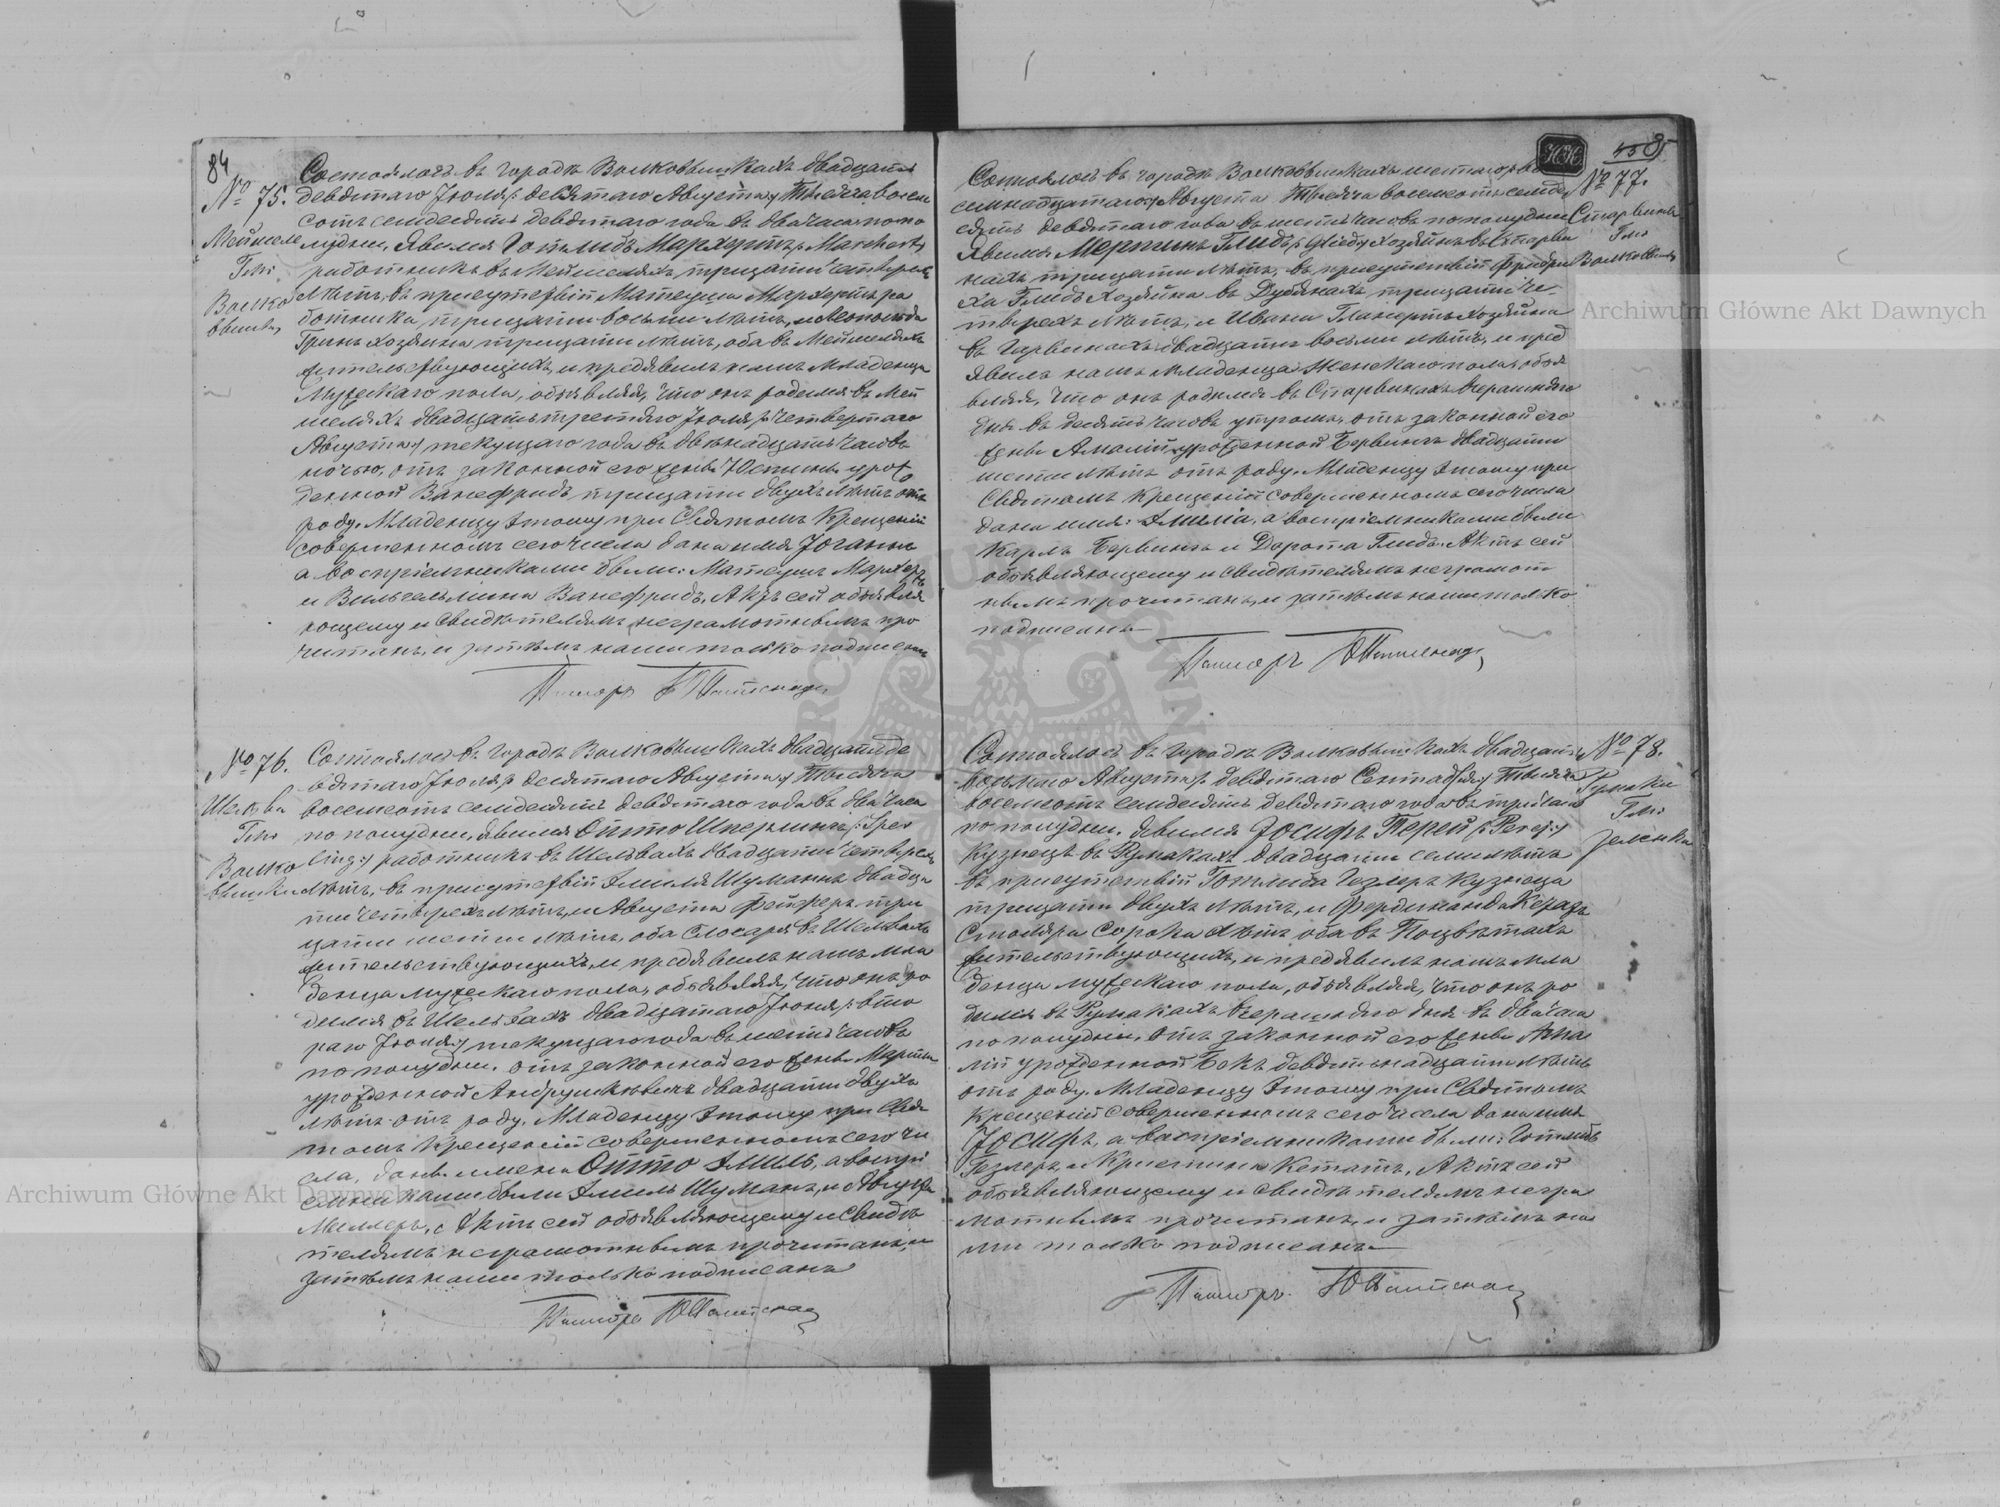 84
№ 75.
Мейшеле
Гмн
Волко
вышки
Состоялось въ городѣ Волковышкахъ двадцать
девятаго Іюля /: десятаго Августа :/ тысяча восем
сотъ семдесятъ девятаго года въ два часа попо
лудни, Явился Готлибъ Мархертъ /: Marchert :/
работникъ въ Мейшеляхъ тридцати четырехъ
лѣтъ, въ присутствіи Матеуша Мархертъ ра
ботника, тридцати восьми лѣтъ, и Леопольда
Гринъ хозяина тридцати лѣтъ, оба въ Мейшеляхъ
жительствующихъ, и предявилъ намъ младенца
мужескаго пола, объявляя, что онъ родился въ Мей
шеляхъ двадцать третяго Іюля /: четвертаго
Августа :/ текущаго года въ двѣнадцать часовъ
ночью, отъ законной его жены Юстины урож
денной Ванефридъ тридцати двухъ лѣтъ отъ
роду. Младенцу этому при Святомъ Крещеніи
совершенномъ сего числа дано имя Іоганнъ
а воспріемниками были: Матеушъ Мархертъ
и Вильгельмина Ванефридъ. Актъ сей объявля
ющему и свидѣтелямъ неграмотнымъ про
читанъ, и затѣмъ нами только подписанъ
Пасторъ
№ 76.
Шельва
Гмн
Волко
вышки
Состоялось въ городѣ Волковышкахъ двадцать де
вятаго Іюля /: десятаго Августа :/ тысяча
восемсотъ семдесятъ девятаго года въ два часа
по полудни, явился Отто Шперлингъ /: Sper
ling :/ работникъ въ Шельвахъ двадцати четырехъ
лѣтъ, въ присутствіи Эмиля Шуманъ двадца
ти четырехъ лѣтъ, и Августа Фейферъ три
цати шести лѣтъ, оба слюсаря въ Шельвахъ
жительствующихъ, и предявилъ намъ мла
денца мужескаго пола, объявляя, что онъ ро
дился въ Шельвахъ двадцатаго Іюня /: вто
раго Іюля :/ текущаго года въ шесть часовъ
по полудни, отъ законной его жены Марти
урожденной Андрушкевичъ двадцати двухъ
лѣтъ отъ роду. Младенцу этому при Свя
томъ Крещеніи совершенномъ сего чи
сла, даны имена Отто Эмиль, а воспрі
емниками были Эмиль Шуманъ, и Августа
Миллеръ, Актъ сей объявляющему и свидѣ
телямъ неграмотнымъ прочитанъ, и
затѣмъ нами только подписанъ
Пасторъ
85
№ 77.
Старвины
Гмн
Волковыш
Состоялось въ городѣ Волковышкахъ
семнадцатаго Августа тысяча восемсотъ семде
сятъ девятаго года въ шесть часовъ по полудни
Явился Мертинъ Глидъ /: Glied :/ хозяинъ въ Старви
нахъ тридцати лѣтъ, въ присутствіи Фридри
ха Глидъ хозяина въ Дубянахъ тридцати че
тырехъ лѣтъ, и Ивана Гланертъ хозяина
въ Гарвинахъ двадцати восьми лѣтъ, и пред
явилъ намъ младенца женскаго пола объя
вляя, что онъ родился въ Старвинахъ вчерашняго
дня въ десять часовъ утромъ, отъ законной его
жены Амаліи урожденной Бервингъ двадцати
шести лѣтъ отъ роду. Младенцу этому при
Святомъ Крещеніи совершенномъ сего числа
дано имя: Эмилія, а воспріемниками были
Карлъ Бервингъ и Дорота Глидъ. Актъ сей
объявляющему и свидѣтелямъ неграмот
нымъ прочитанъ, и затѣмъ нами только
подписанъ
Пасторъ
№ 78.
Румаки
Гмн
Зеленка
Состоялось въ городѣ Волковышкахъ двадцать
восьмаго Августа /: девятаго Сентября :/ тысяча
восемсотъ семдесятъ девятаго года въ три часа
по полудни. Явился Іосифъ Перей /: Perej :/
Кузнецъ въ Румакахъ двадцати семи лѣтъ
въ присутствіи Готлиба Гезлеръ кузнеца
тридцати двухъ лѣтъ, и Фердинанда
Столяра сорока лѣтъ оба въ Поцвѣтахъ
жительствующихъ, и предявилъ намъ мла
денца мужескаго пола, объявляя, что онъ ро
дился въ Румакахъ вчерашняго дня въ два часа
по полудни, отъ законной его жены Ама
ліи урожденной Бекъ девятьнадцати лѣтъ
отъ роду. Младенцу этому при Святомъ
Крещеніи совершенномъ сего числа дано имя
Іосифъ, а воспріемниками были: Готлибъ
Гезлеръ, и Кристина Кетатъ. Актъ сей
объявляющему и свидѣтелямъ негра
мотнымъ прочитанъ, и затѣмъ на
ми только подписанъ
Пасторъ
Archiwum Główne Akt Dawnych
Archiwum Główne Akt Dawnych